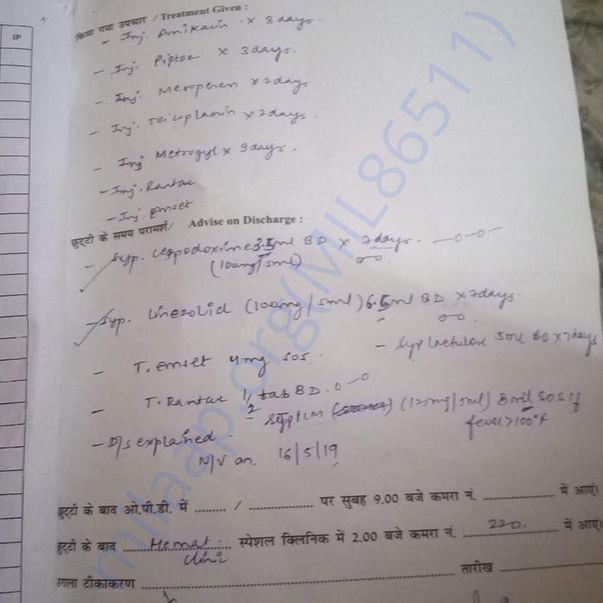 IP
किया गया उपचार / Treatment Given :
- Inj. Amikacin x 3 days
- Inj. Piptaz x 3 days.
- Inj. Meropenem x 7 days
- Inj. Teicoplanin x 7 days.
- Inj Metrogyl x 9 days.
- Inj. Rantac
- Inj emset
छुट्टी के समय परामर्श/ Advise on Discharge :
- Syp. Cefpodoxime 3.5ml BD x 7 days.
(100mg/5ml)
- Syp. Linezolid (100mg/5ml) 6.5ml BD x 7 days
- T. emset 4mg SOS.
- Syp lactulose 5ml BD x 7 days
- T. Rantac 1/2 tab BD.
Syp PCM (125mg/5ml) 8ml SOS if
fever > 100°F
- D/s explained.
N/V on. 16/5/19
छुट्टी के बाद ओ.पी.डी. में ......... / ............... पर सुबह 9.00 बजे कमरा नं. ................ में आएं।
छुट्टी के बाद Hemat स्पेशल क्लिनिक में 2.00 बजे कमरा नं. 220. में आएं।
Clinic
गला टीकाकरण ................ तारीख ................
milaap.org(MIL86511)